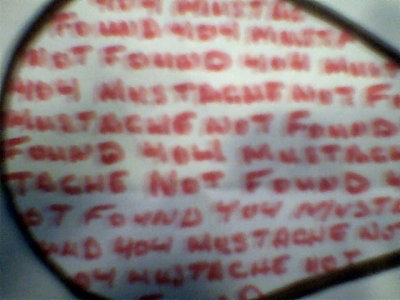 YOU MUSTAC
FOUND YOU MUSTA
NOT FOUND YOU MUST
YOU MUSTACHE NOT FO
MUSTACHE NOT FOUND
FOUND YOU MUSTACH
TACHE NOT FOUND
OT FOUND YOU MUSTA
UND YOU MUSTACHE NOT
YOU MUSTACHE NOT
FOUND